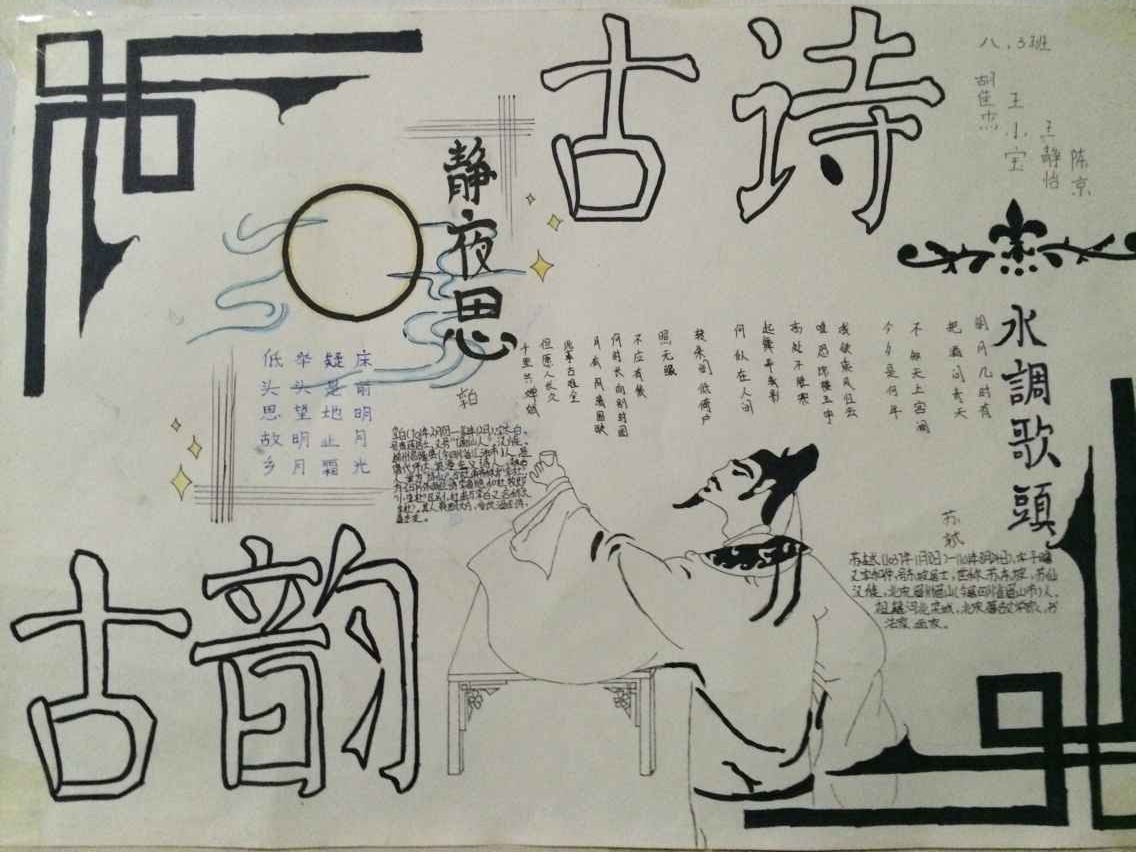 古诗
古韵
八.3班
胡佳杰
王小宝
王静怡
陈京
静夜思
李白
床前明月光
疑是地上霜
举头望明月
低头思故乡
水調歌頭
苏轼
明月几时有
把酒问青天
不知天上宫阙
今夕是何年
我欲乘风归去
唯恐琼楼玉宇
高处不胜寒
起舞弄清影
何似在人间
转朱阁低绮户
照无眠
不应有恨
何时长向别时圆
月有阴晴圆缺
此事古难全
但愿人长久
千里共婵娟
苏轼(1037年1月8日)—1101年8月24日),字子瞻
又字和仲,号东坡居士,世称苏东坡、苏仙
汉族,北宋眉州眉山(今属四川省眉山市)人,
祖籍河北栾城,北宋著名文学家、书
法家、画家。